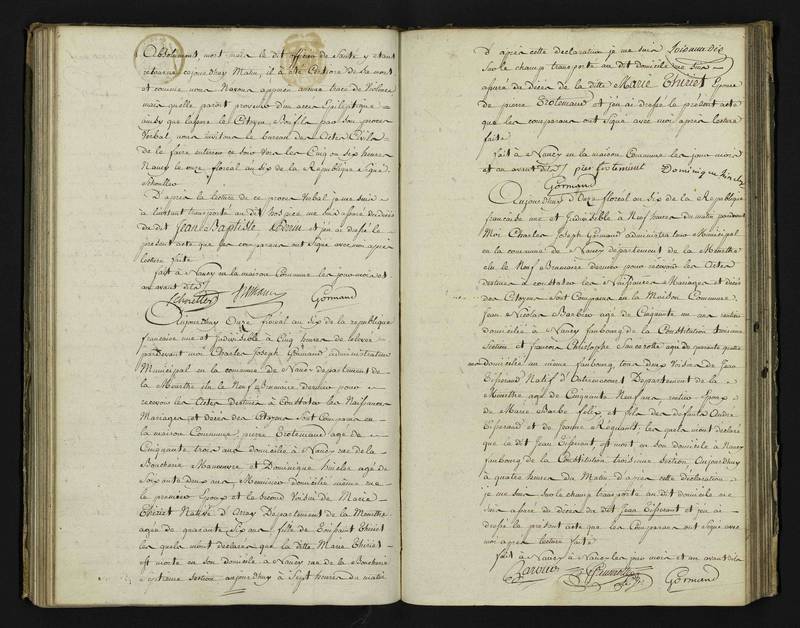 absolument mort mais le dit officier de Santé y etant
retourné cejourdhuy Matin, il a été Certioré de sa mort
et comme nous Navons apperçu aucune trace de violence
mais quelle paroit provenir d'un acces Epileptique
ainsy que lassure le Citoyen Bonfils par son proces
Verbal, nous invitons le bureau des Actes Civils
de le faire enterrer ce soir vers les Cinq ou six heures
Nancy le onze floréal an Six de la République Signé
D'après la lecture de ce proces Verbal je me suis
à linstant transporté au dit hospice me suis assuré du décès
du dit Jean Baptiste et jen ai dressé le
present acte que les comparans ont signé avec moi après
lecture faite
fait à Nancy en la maison Commune les jour mois et
an avant dits
Gormand
Aujourdhuy Onze floréal an Six de la republique
francaise une et Indivisible à Cinq heures de relevée
pardevant moi Charles Joseph Gormand administrateur
Municipal en la commune de Nancy departement de
la Meurthe élu le Neuf Brumaire dernier pour
recevoir les Actes destinés à Constater les Naissances
Mariages et décès des Citoyens Sont Comparus en
la maison Commune, pierre Trotemeaux agé de
Cinquante trois ans domicilié à Nancy rue de la
Boucherie Manoeuvre et Dominique agé de
Soixante deux ans Menuisier domicilié même rue
le premier Epoux et le second Voisin de Marie
Thiriet Native d'Array Département de la Meurthe
agée de quarante Six ans fille de Thiriet
les quels mont déclaré que la ditte Marie Thiriet
est morte en son domicile à Nancy rue de la Boucherie
Septieme Section aujourdhuy à Sept heures du matin
d'après cette declaration je me suis
Sur le champ transporté au dit domicile me suis
assuré du décès de la ditte Marie Thiriet Epouse
de pierre Trotemeaux et jen ai dressé le présent acte
que les comparans ont signé avec moi après lecture
faite
fait à Nancy en la maison Commune les jour mois
et an avant dits
Gormand
Aujourdhuy Onze floréal an Six de la Republique
francaise une et Indivisible à Neuf heures du matin pardevant
Moi Charles Joseph Gormand administrateur Municipal
en la commune de Nancy département de la Meurthe
élu le Neuf Brumaire dernier pour recevoir les Actes
destinés à constater les Naissances Mariages et décès
des Citoyens Sont Comparus en la Maison Commune
Jean Nicolas Barbier agé de Cinquante un ans rentier
domicilié à Nancy faubourg de la Constitution troisieme
Section et francois Christophe agé de quarante quatre
ans domicilié au même faubourg tous deux Voisins de Jean
Bisserand Natif d' Departement de la
Meurthe agé de Cinquante Neuf ans rentier Epoux
de Marie Barbe felix et fils des défunts André
Bisserand et de Jeanne les quels mont déclaré
que le dit Jean Bisserand est mort en son domicile à Nancy
faubourg de la Constitution troisieme Section, Aujourdhuy
à quatre heures du Matin, d'après cette déclaration
je me suis sur le champ transporté au dit domicile me
suis assuré du décès du dit Jean Bisserand et jen ai
dressé le présent acte que les Comparans ont signé avec
moi après lecture faite
fait à Nancy à Nancy les jour mois et an avant dits
Gormand